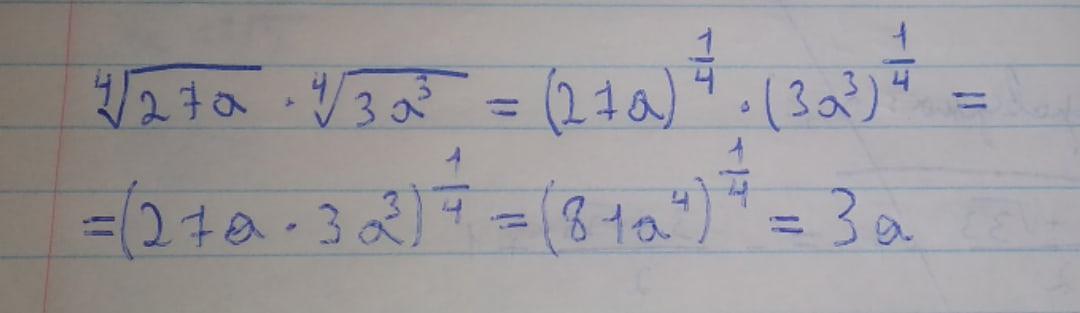 ⁴√27a · ⁴√3a³ = (27a)^(1/4) · (3a³)^(1/4) =
= (27a · 3a³)^(1/4) = (81a⁴)^(1/4) = 3a